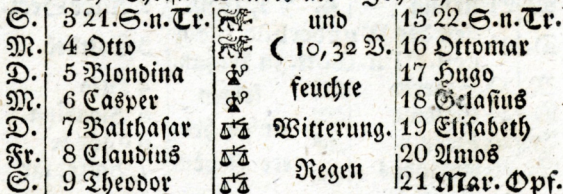 S. 3 21.S.n.Tr. und 15 22.S.n.Tr.
M. 4 Otto ( 10,32 V. 16 Ottomar
D. 5 Blondina feuchte 17 Hugo
M. 6 Casper 18 Gelasius
D. 7 Balthasar Witterung. 19 Elisabeth
Fr. 8 Claudius Regen 20 Amos
S. 9 Theodor 21 Mar. Opf.